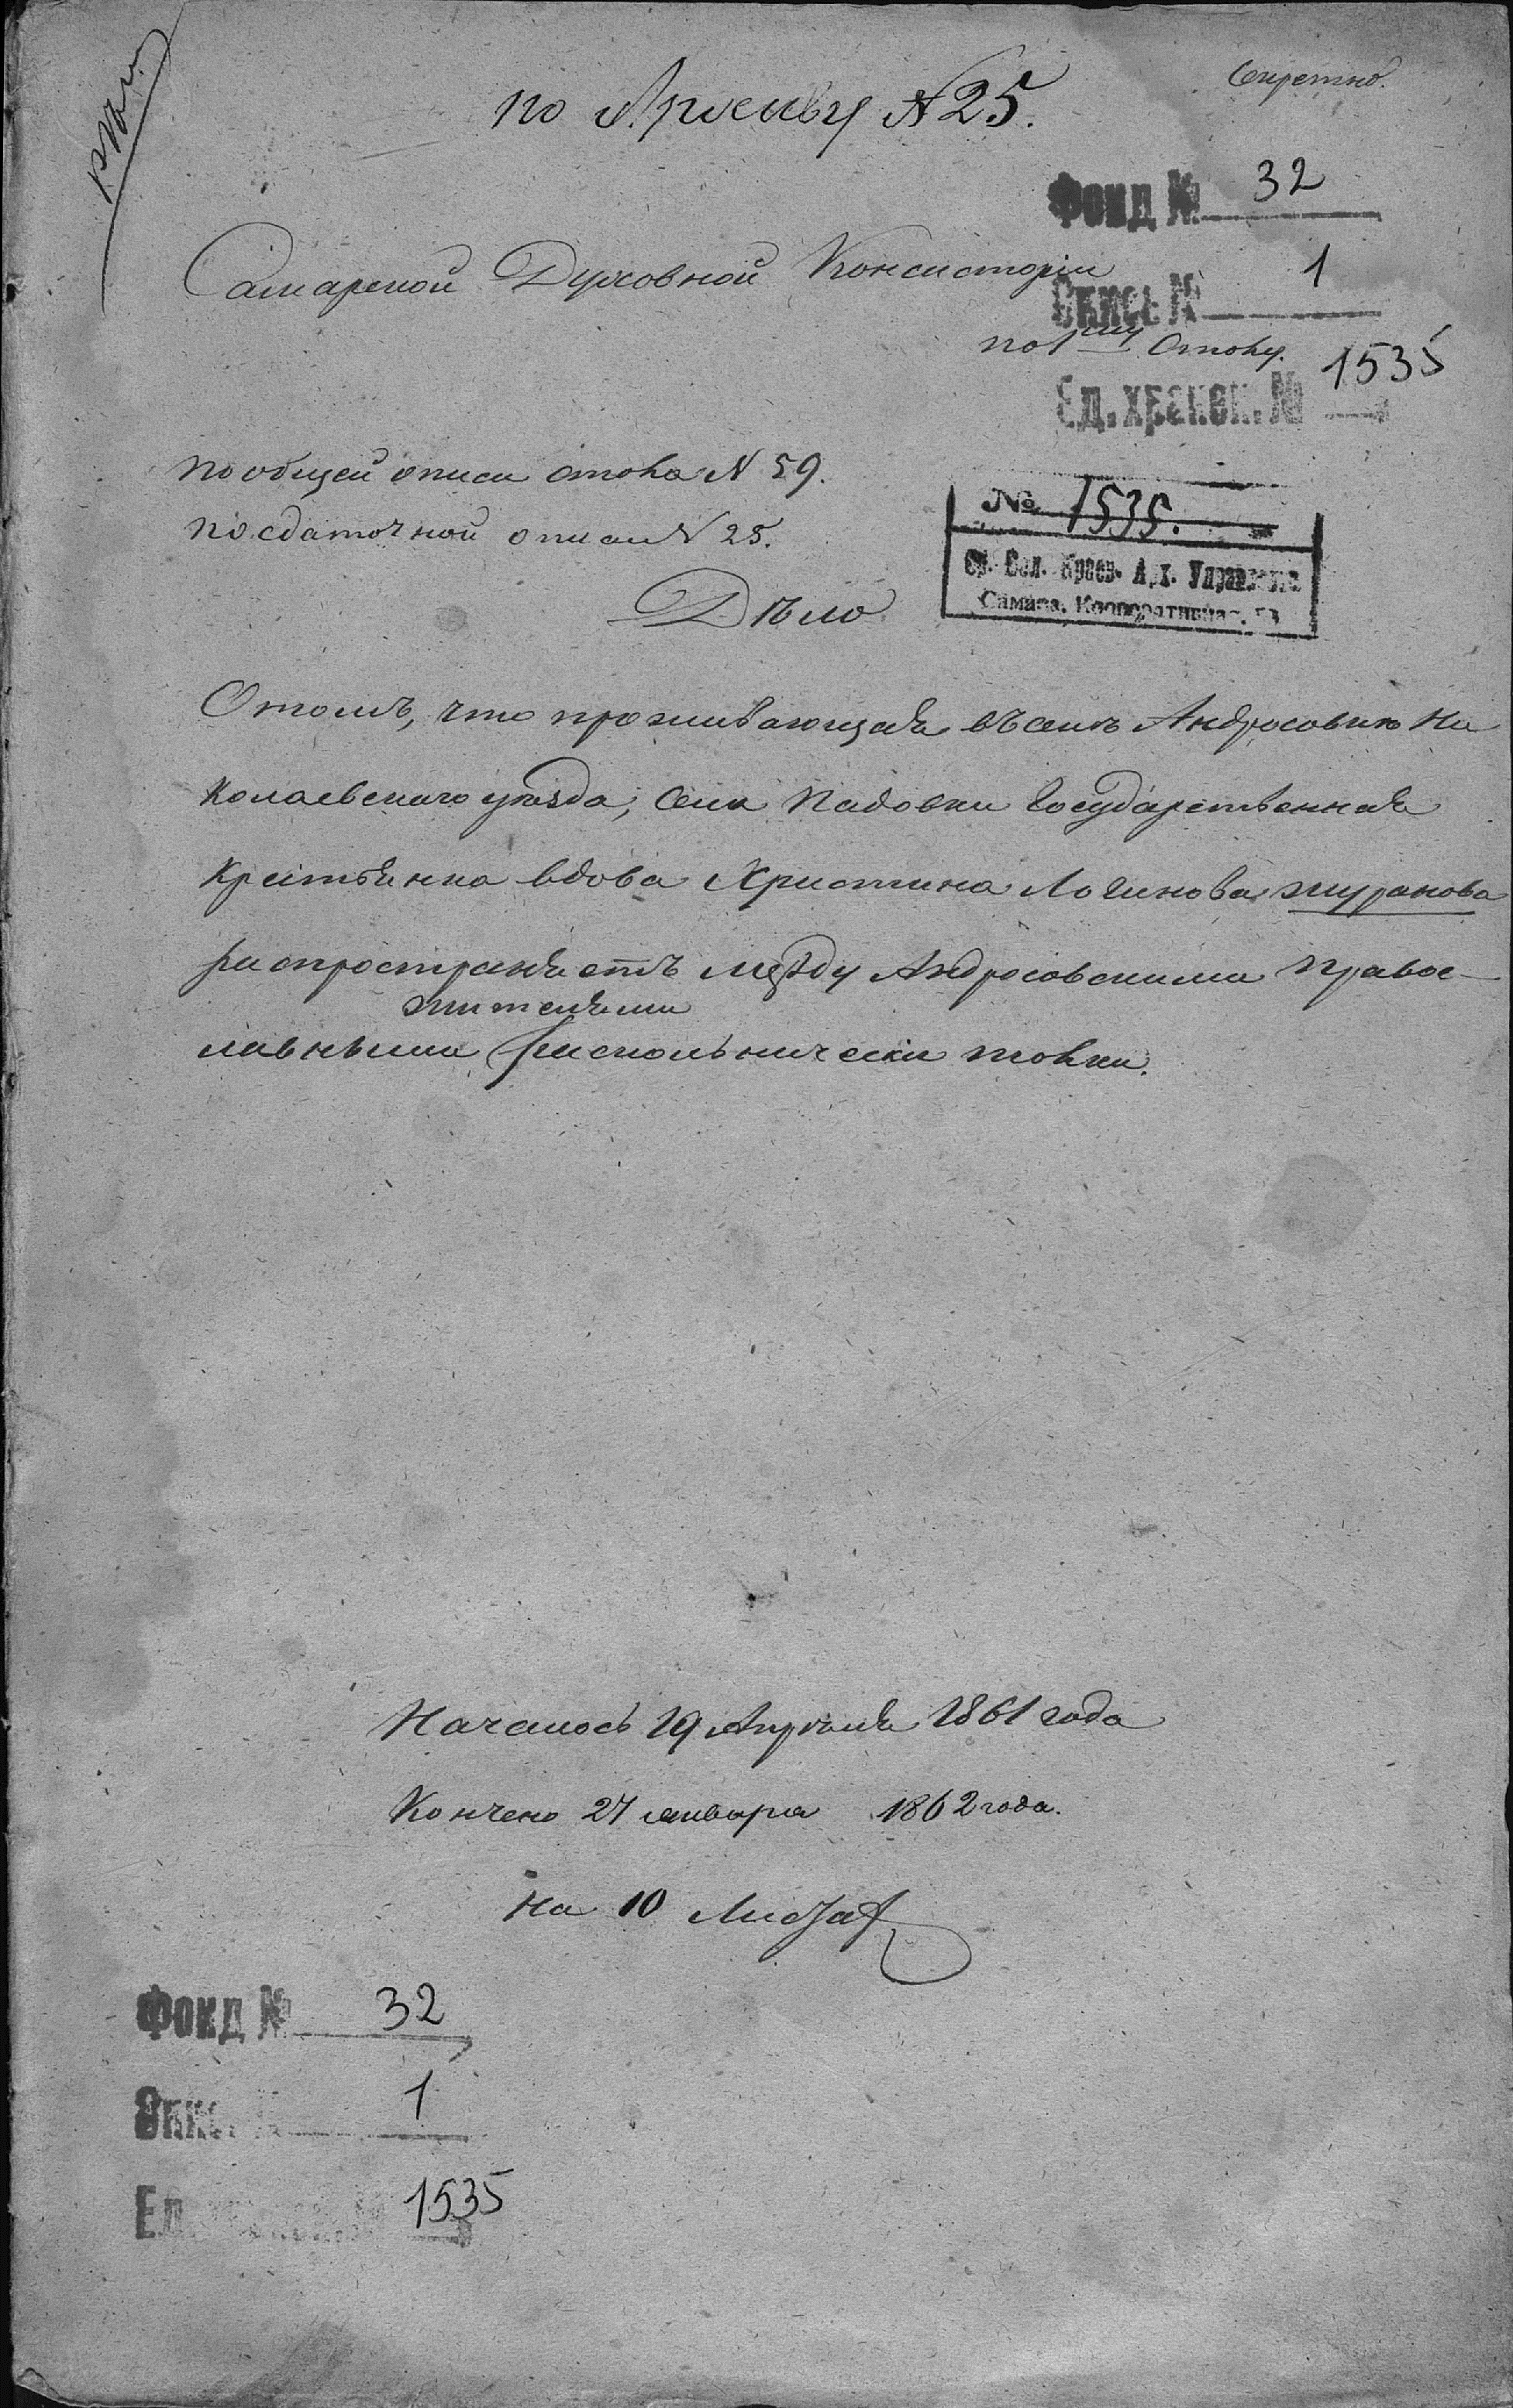 Секретно.
по Архиву № 25.
Фонд № 32
Самарской Духовной Консисторіи
Опись № 1
по 1му столу.
Ед. хранен. № 1535
по общей описи стола № 59.
по сдаточной описи № 25.
№ 1535.
Ср. Вол. Краев. Арх. Управление
Самара, Кооперативная,
Дѣло
О томъ, что проживающая въ селѣ Андросовкѣ Ни
колаевскаго уѣзда, села Падовки государственная
крестьянка вдова Христина Логинова Журакова
распространяетъ между Андросовскими правос-
жителями
лавными раскольнически толки.
Началось 19 Апрѣля 1861 года
Кончено 27 января 1862 года.
на 10 листах
Фонд № 32
Опис 1
Ед. 1535